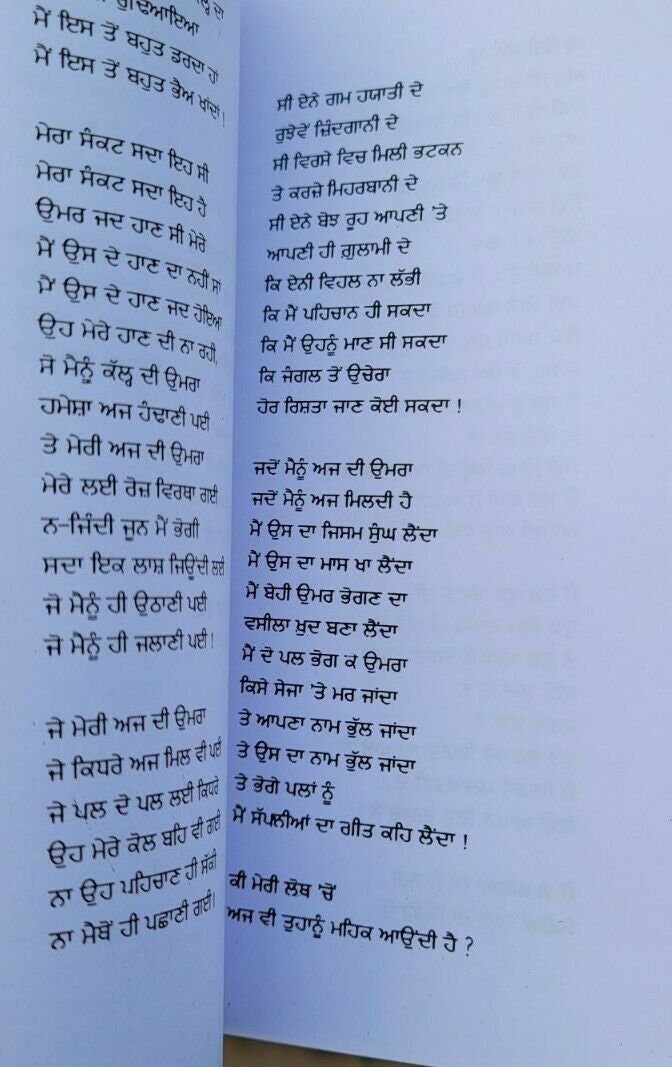 ਮੈਂ ਇਸ ਤੋਂ ਬਹੁਤ ਡਰਦਾ ਹਾਂ
ਮੈਂ ਇਸ ਤੋਂ ਬਹੁਤ ਭੈਅ ਖਾਂਦਾਂ !
ਮੇਰਾ ਸੰਕਟ ਸਦਾ ਇਹ ਸੀ
ਮੇਰਾ ਸੰਕਟ ਸਦਾ ਇਹ ਹੈ
ਉਮਰ ਜਦ ਹਾਣ ਸੀ ਮੇਰੇ
ਮੈਂ ਉਸ ਦੇ ਹਾਣ ਦਾ ਨਹੀਂ ਸਾਂ
ਮੈਂ ਉਸ ਦੇ ਹਾਣ ਜਦ ਹੋਇਆ
ਉਹ ਮੇਰੇ ਹਾਣ ਦੀ ਨਾ ਰਹੀ,
ਸੋ ਮੈਨੂੰ ਕੱਲ੍ਹ ਦੀ ਉਮਰਾ
ਹਮੇਸ਼ਾ ਅਜ ਹੰਢਾਣੀ ਪਈ
ਤੇ ਮੇਰੀ ਅਜ ਦੀ ਉਮਰਾ
ਮੇਰੇ ਲਈ ਰੋਜ਼ ਵਿਰਥਾ ਗਈ
ਨ-ਜਿੰਦੀ ਜੂਨ ਮੈਂ ਭੋਗੀ
ਸਦਾ ਇਕ ਲਾਸ਼ ਜਿਉਂਦੀ ਲਈ
ਜੋ ਮੈਨੂੰ ਹੀ ਉਠਾਣੀ ਪਈ
ਜੋ ਮੈਨੂੰ ਹੀ ਜਲਾਣੀ ਪਈ !
ਜੇ ਮੇਰੀ ਅਜ ਦੀ ਉਮਰਾ
ਜੇ ਕਿਧਰੇ ਅਜ ਮਿਲ ਵੀ ਪਈ
ਜੇ ਪਲ ਦੋ ਪਲ ਲਈ ਕਿਧਰੇ
ਉਹ ਮੇਰੇ ਕੋਲ ਬਹਿ ਵੀ ਗਈ
ਨਾ ਉਹ ਪਹਿਚਾਣ ਹੀ ਸੱਕੀ
ਨਾ ਮੈਥੋਂ ਹੀ ਪਛਾਣੀ ਗਈ।
ਸੀ ਏਨੇ ਗਮ ਹਯਾਤੀ ਦੇ
ਰੁਝੇਵੇਂ ਜ਼ਿੰਦਗਾਨੀ ਦੇ
ਸੀ ਵਿਰਸੇ ਵਿਚ ਮਿਲੀ ਭਟਕਨ
ਤੇ ਕਰਜ਼ੇ ਮਿਹਰਬਾਨੀ ਦੇ
ਸੀ ਏਨੇ ਬੋਝ ਰੂਹ ਆਪਣੀ 'ਤੇ
ਆਪਣੀ ਹੀ ਗ਼ੁਲਾਮੀ ਦੇ
ਕਿ ਏਨੀ ਵਿਹਲ ਨਾ ਲੱਭੀ
ਕਿ ਮੈਂ ਪਹਿਚਾਨ ਹੀ ਸਕਦਾ
ਕਿ ਮੈਂ ਉਹਨੂੰ ਮਾਣ ਸੀ ਸਕਦਾ
ਕਿ ਜੰਗਲ ਤੋਂ ਉਚੇਰਾ
ਹੋਰ ਰਿਸ਼ਤਾ ਜਾਣ ਕੋਈ ਸਕਦਾ !
ਜਦੋਂ ਮੈਨੂੰ ਅਜ ਦੀ ਉਮਰਾ
ਜਦੋਂ ਮੈਨੂੰ ਅਜ ਮਿਲਦੀ ਹੈ
ਮੈਂ ਉਸ ਦਾ ਜਿਸਮ ਸੁੰਘ ਲੈਂਦਾ
ਮੈਂ ਉਸ ਦਾ ਮਾਸ ਖਾ ਲੈਂਦਾ
ਮੈਂ ਬੇਹੀ ਉਮਰ ਭੋਗਣ ਦਾ
ਵਸੀਲਾ ਖ਼ੁਦ ਬਣਾ ਲੈਂਦਾ
ਮੈਂ ਦੋ ਪਲ ਭੋਗ ਕੇ ਉਮਰਾ
ਕਿਸੇ ਸੇਜਾ 'ਤੇ ਮਰ ਜਾਂਦਾ
ਤੇ ਆਪਣਾ ਨਾਮ ਭੁੱਲ ਜਾਂਦਾ
ਤੇ ਉਸ ਦਾ ਨਾਮ ਭੁੱਲ ਜਾਂਦਾ
ਤੇ ਭੋਗੇ ਪਲਾਂ ਨੂੰ
ਮੈਂ ਸੱਪਣੀਆਂ ਦਾ ਗੀਤ ਕਹਿ ਲੈਂਦਾ !
ਕੀ ਮੇਰੀ ਲੋਥ 'ਚੋਂ
ਅਜ ਵੀ ਤੁਹਾਨੂੰ ਮਹਿਕ ਆਉਂਦੀ ਹੈ ?